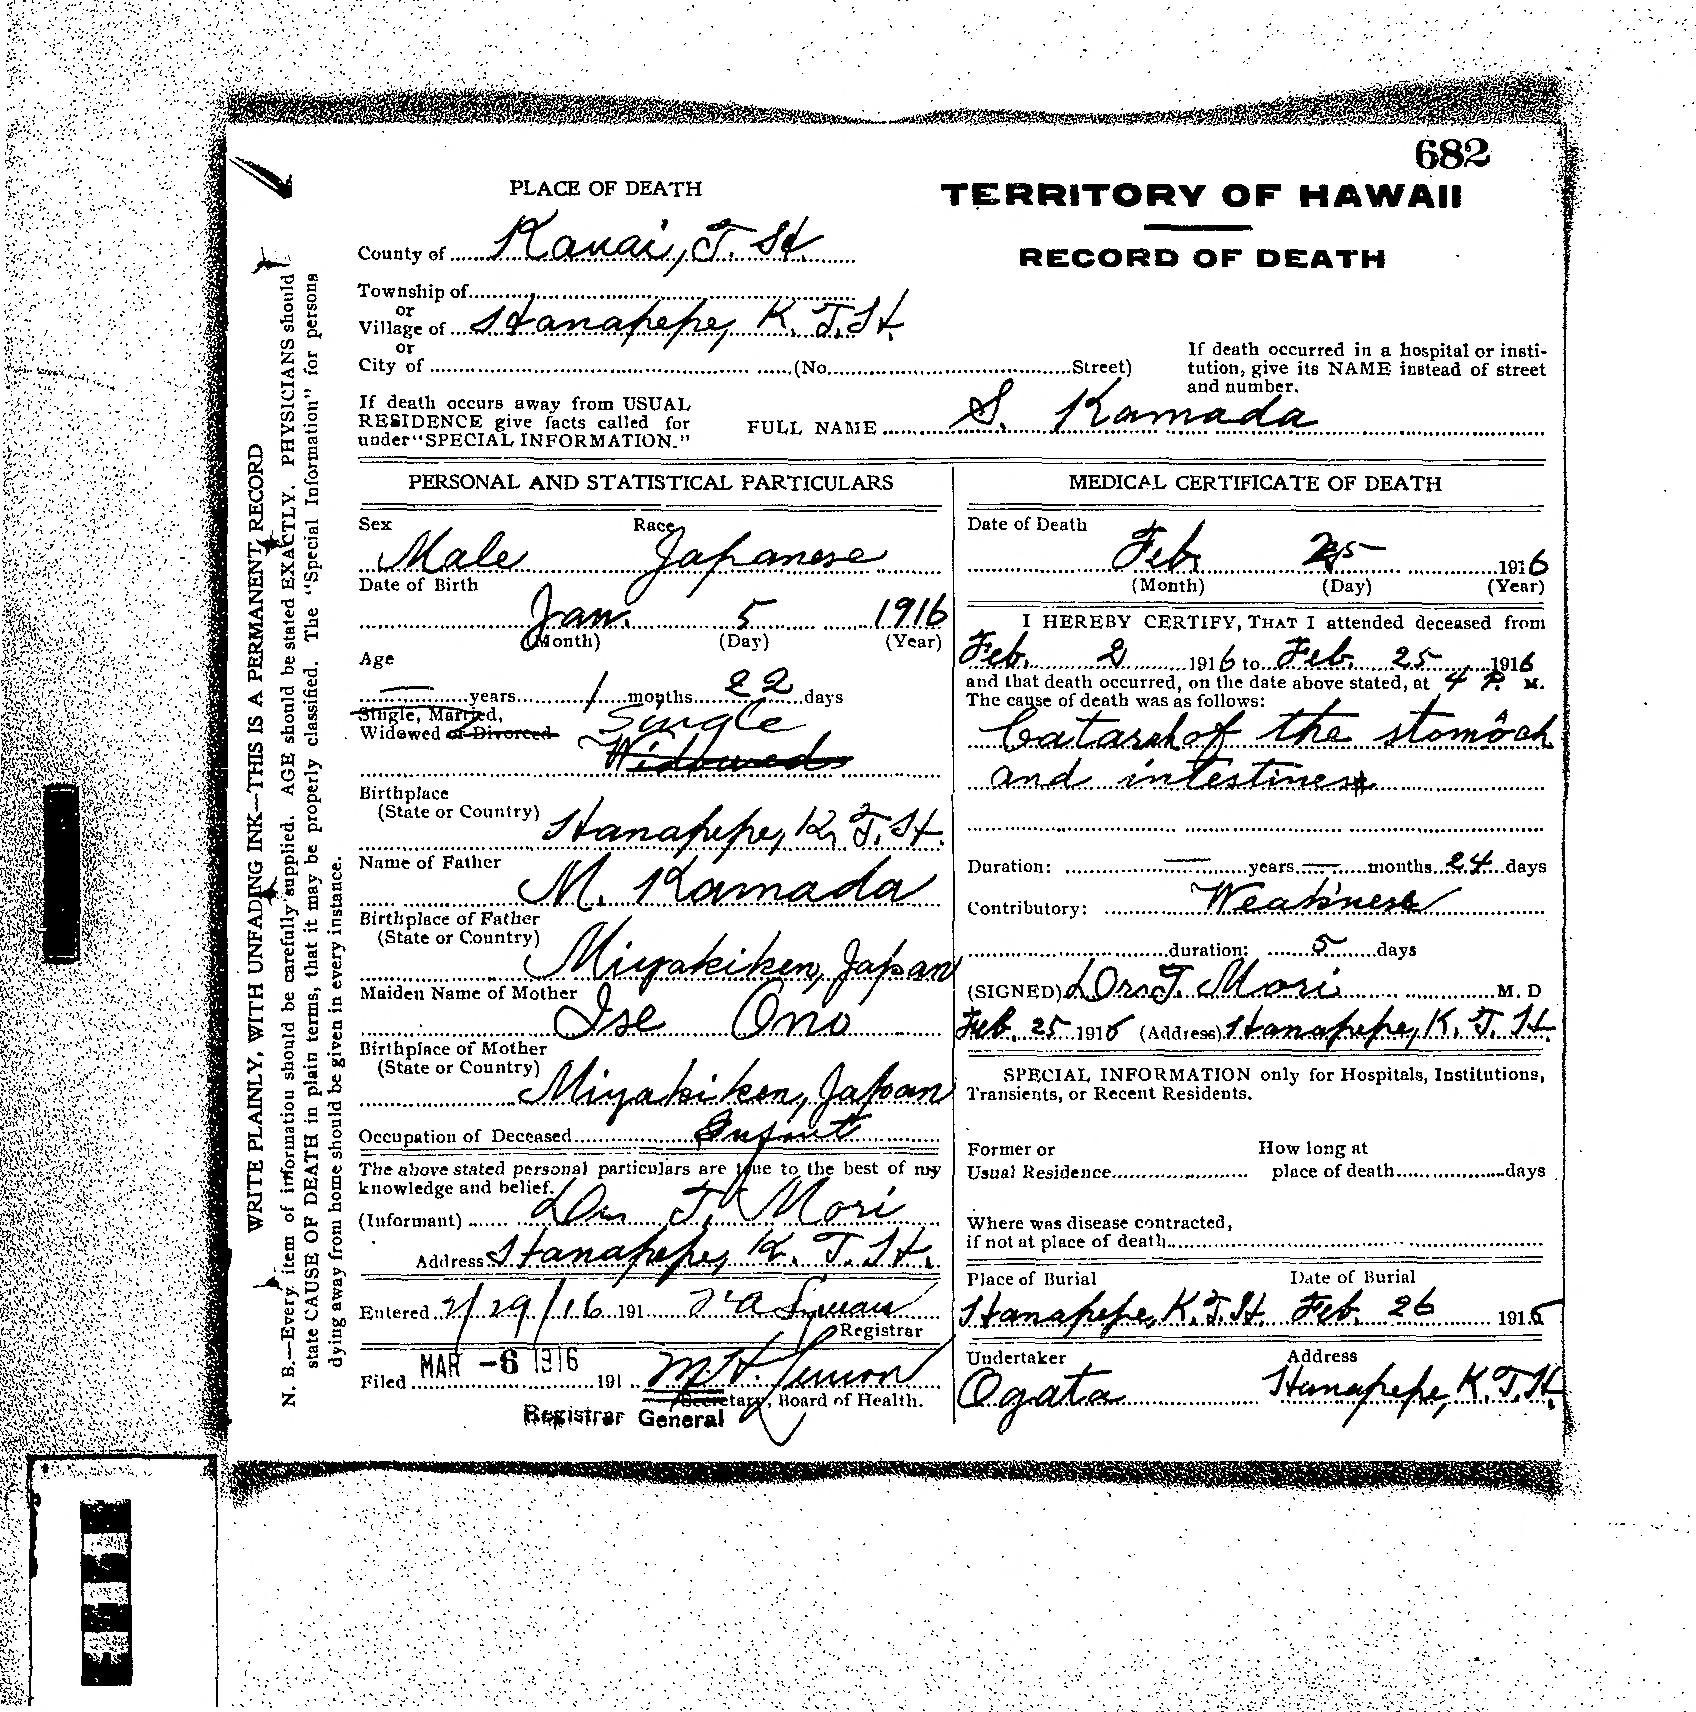 682
PLACE OF DEATH
TERRITORY OF HAWAII
RECORD OF DEATH
County of Kauai, T. H.
Township of
or
Village of Hanapepe, K. T. H.
or
City of (No. Street)
If death occurred in a hospital or insti-
tution, give its NAME instead of street
and number.
If death occurs away from USUAL
RESIDENCE give facts called for
under "SPECIAL INFORMATION."
FULL NAME S. Kamada
PERSONAL AND STATISTICAL PARTICULARS
Sex Race
Male Japanese
Date of Birth
Jan. 5 1916
(Month) (Day) (Year)
Age
— years 1 months 22 days
Single, Married,
Widowed or Divorced
Single
Widowed
Birthplace
(State or Country) Hanapepe, K. T. H.
Name of Father
M. Kamada
Birthplace of Father
(State or Country)
Miyakiken, Japan
Maiden Name of Mother
Ise Ono
Birthplace of Mother
(State or Country)
Miyakiken, Japan
Occupation of Deceased Infant
The above stated personal particulars are true to the best of my
knowledge and belief.
(Informant) Dr. T. Mori
Address Hanapepe, K. T. H.
Entered 2/29/16 191
Registrar
Filed MAR -6 1916 191
Secretary, Board of Health.
Registrar General
MEDICAL CERTIFICATE OF DEATH
Date of Death
Feb. 25 1916
(Month) (Day) (Year)
I HEREBY CERTIFY, THAT I attended deceased from
Feb. 2 1916 to Feb. 25 1916
and that death occurred, on the date above stated, at 4 P. M.
The cause of death was as follows:
Catarrh of the stomach
and intestines
Duration: — years — months 24 days
Contributory: Weakness
duration: 5 days
(SIGNED) Dr. T. Mori M. D
Feb. 25 1916 (Address) Hanapepe, K. T. H.
SPECIAL INFORMATION only for Hospitals, Institutions,
Transients, or Recent Residents.
Former or How long at
Usual Residence place of death days
Where was disease contracted,
if not at place of death
Place of Burial Date of Burial
Hanapepe, K. T. H. Feb. 26 1916
Undertaker Address
Ogata Hanapepe, K. T. H.
WRITE PLAINLY, WITH UNFADING INK—THIS IS A PERMANENT RECORD
N. B.—Every item of information should be carefully supplied. AGE should be stated EXACTLY. PHYSICIANS should
state CAUSE OF DEATH in plain terms, that it may be properly classified. The "Special Information" for persons
dying away from home should be given in every instance.